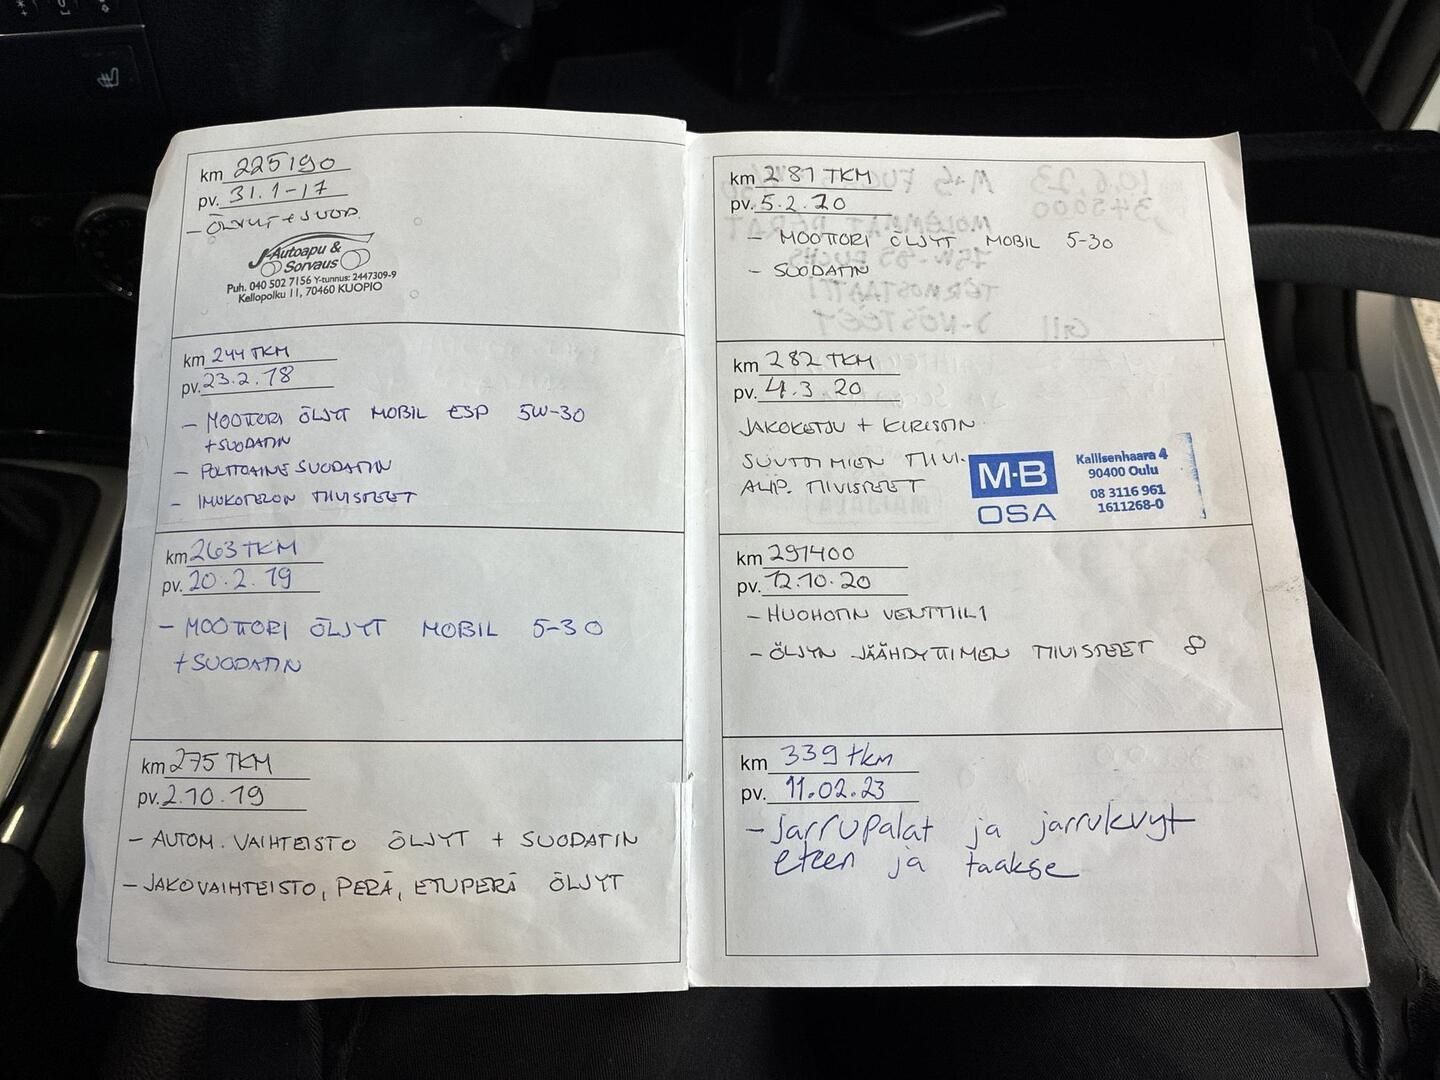 km 225190
pv. 31.1-17
- ÖLJYT + SUOD.
Autoapu &
Sorvaus
Puh. 040 502 7156 Y-tunnus: 2447309-9
Kellopolku 11, 70460 KUOPIO
km 244 TKM
pv. 23.2.18
- MOOTTORI ÖLJYT MOBIL ESP 5W-30
+SUODATIN
- POLTTOAINE SUODATIN
- IMUKOTELON TIIVISTEET
km 263 TKM
pv. 20.2.19
- MOOTTORI ÖLJYT MOBIL 5-30
+SUODATIN
km 275 TKM
pv. 2.10.19
- AUTOM. VAIHTEISTO ÖLJYT + SUODATIN
- JAKOVAIHTEISTO, PERÄ, ETUPERÄ ÖLJYT
km 281 TKM
pv. 5.2.20
- MOOTTORI ÖLJYT MOBIL 5-30
- SUODATIN
km 282 TKM
pv. 4.3.20
JAKOKETJU + KIRISTIN
SUUTTIMIEN TIIVI.
ALIP. TIIVISTEET
M·B
OSA
Kallisenhaara 4
90400 Oulu
08 3116 961
1611268-0
km 291400
pv. 12.10.20
- HUOHOTIN VENTTIILI
- ÖLJYN JÄÄHDYTTIMEN TIIVISTEET
km 339 tkm
pv. 11.02.23
- Jarrupalat ja jarrulevyt
eteen ja taakse